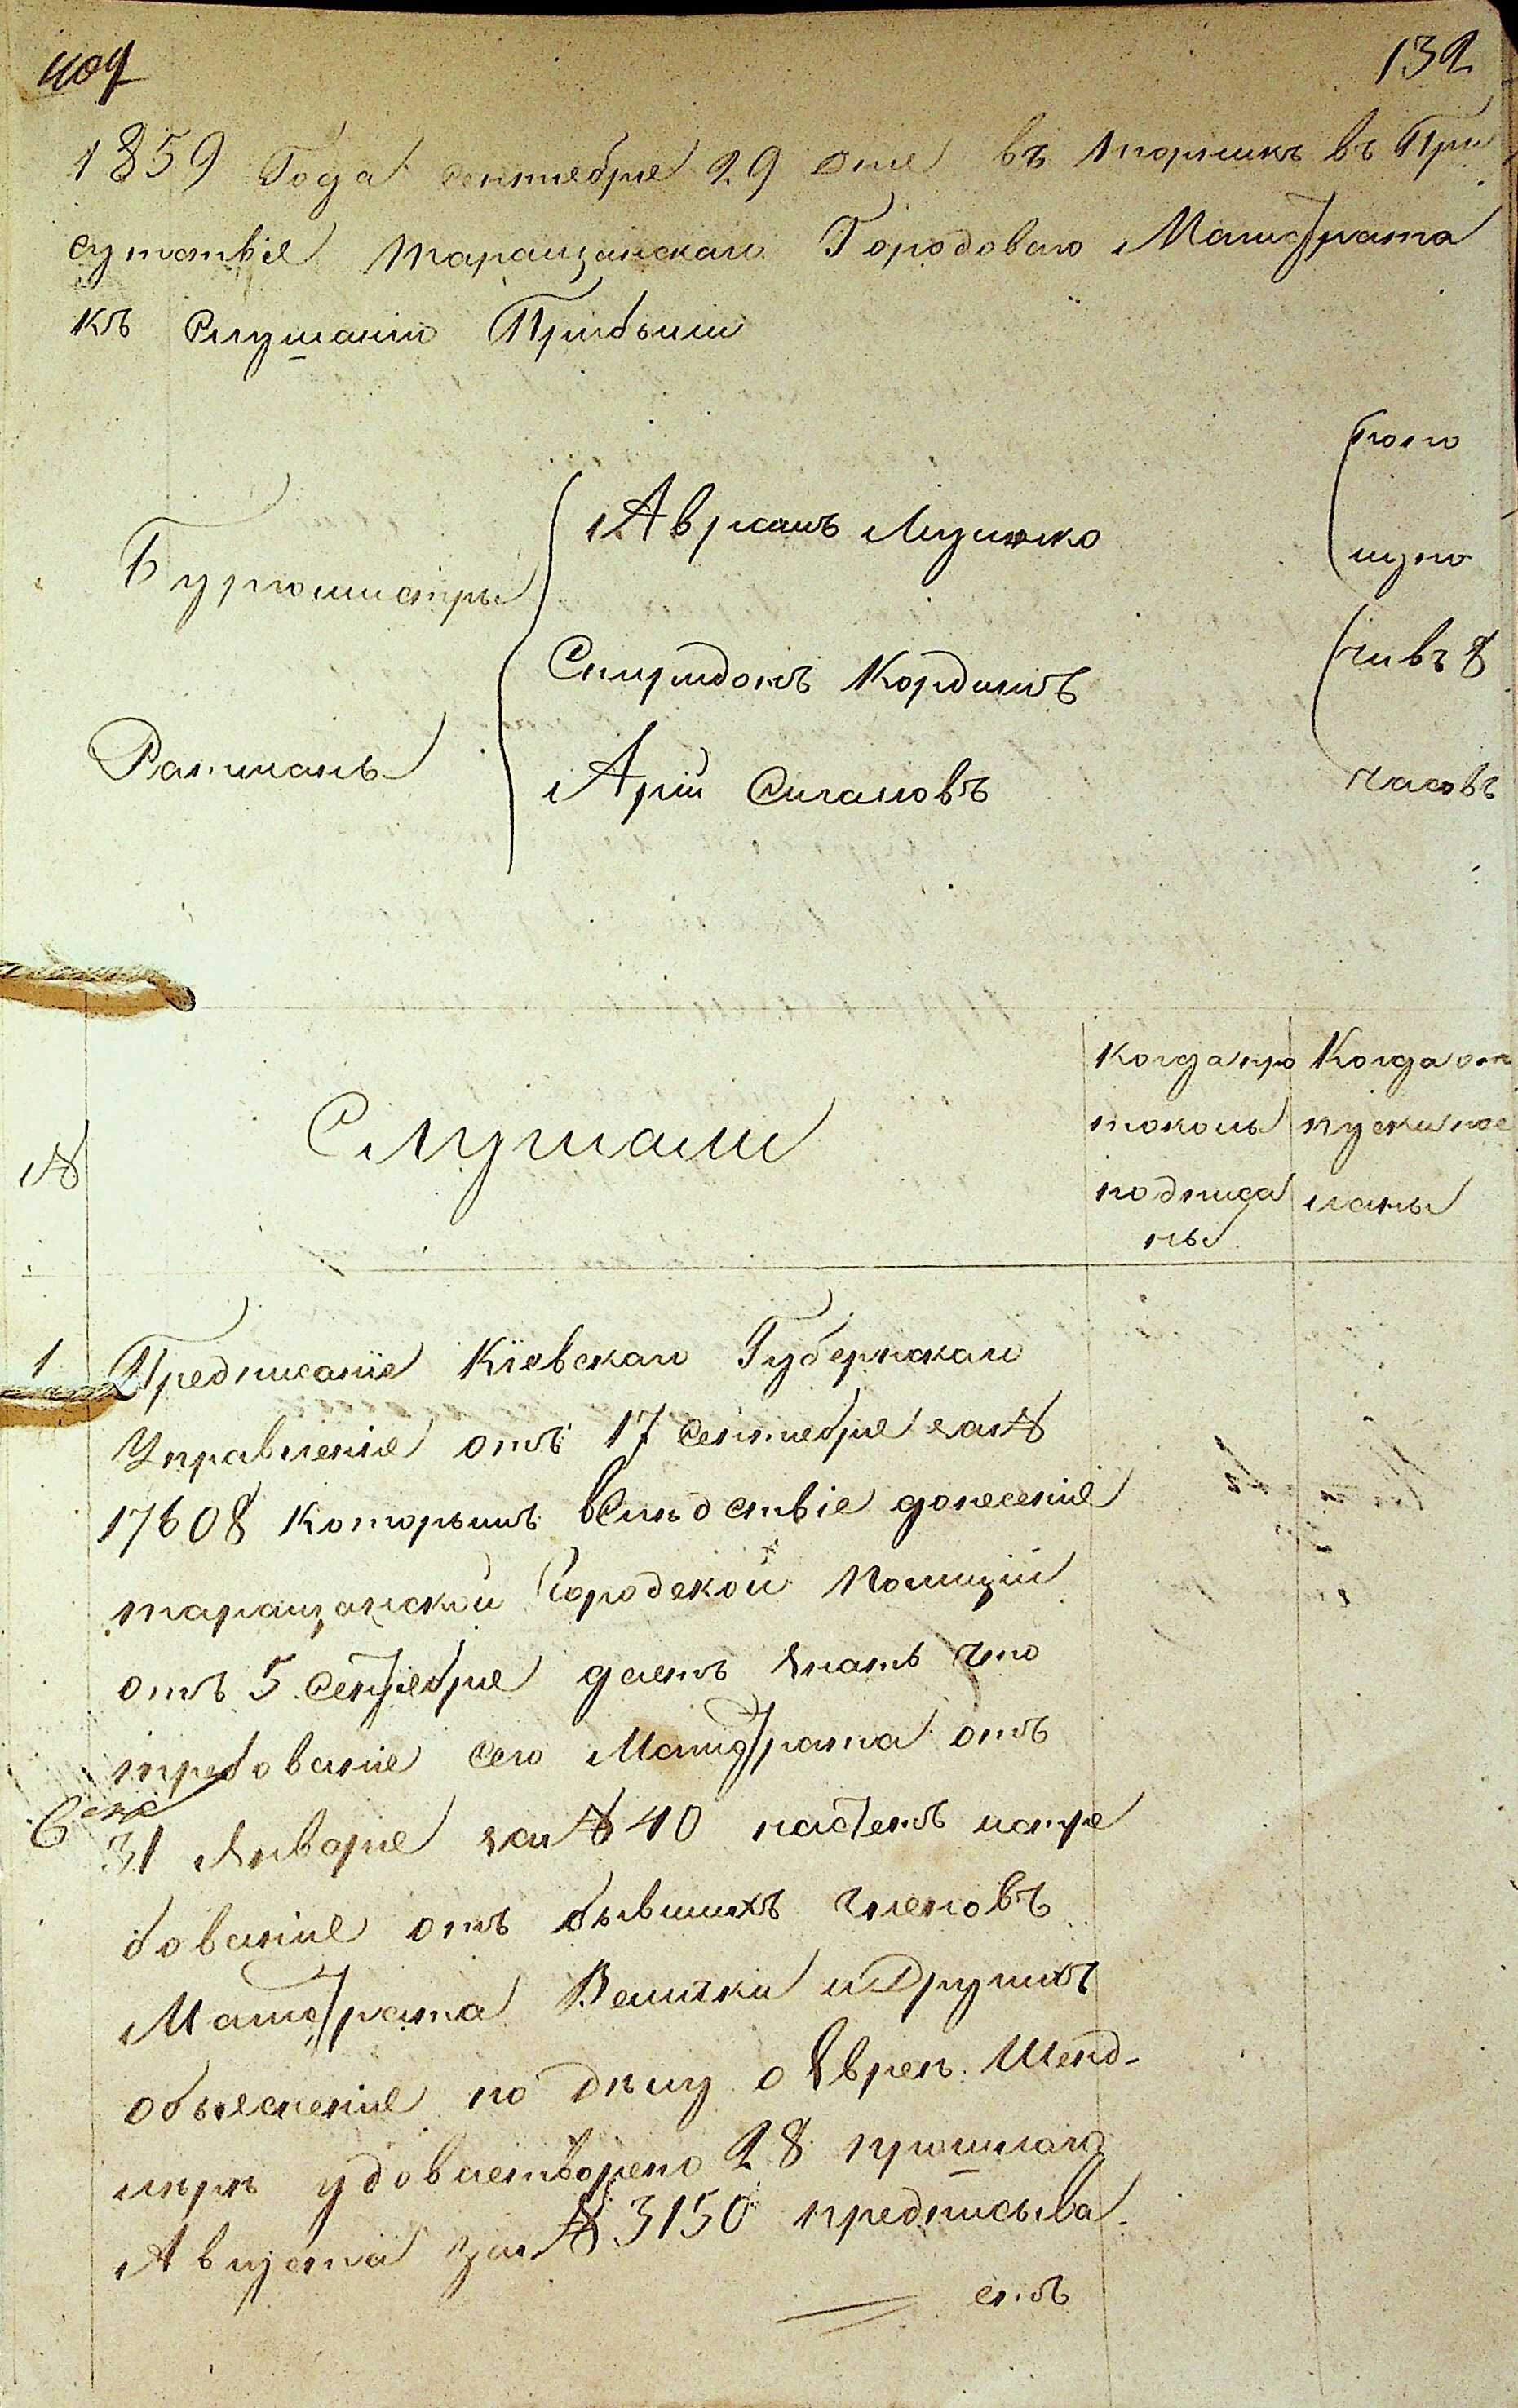 132
1859 Года сентебрие 29 дние въ вторникъ въ При
сутствіе таращанскаго Городоваго Магистрата
къ слушанію Прибыли
Бургомистры
Аврамъ
Спиридонъ Кордишъ
Ратманъ
Арій Сигаловъ
полу
чивъ 8
часовъ
№
Слушали
Когда про
токолы
подписа
ны
Когда от
пуски пос
ланы
1
Предписаніе Кіевскаго Губернскаго
Управленіе отъ 17 Сентебрие за №
17608 которымъ вслѣдствіе донесеніе
таращанской Городской Полиціи
отъ 5 Сентебрие даетъ знать что
требованіе сего Магистрата отъ
31 Январие за № 40 насчетъ истре
бованіе отъ бывшихъ членовъ
Магистрата Велички и Другихъ
объесненіе по дѣлу о Евреѣ Шенд-
лѣрѣ удовлетворено 28 прошлаго
Августа за № 3150 предписыва
етъ